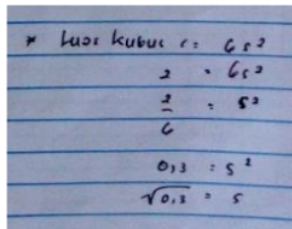 * Luas kubus = 6s²
2 = 6s²
2/6 = s²
0,3 = s²
√0,3 = s